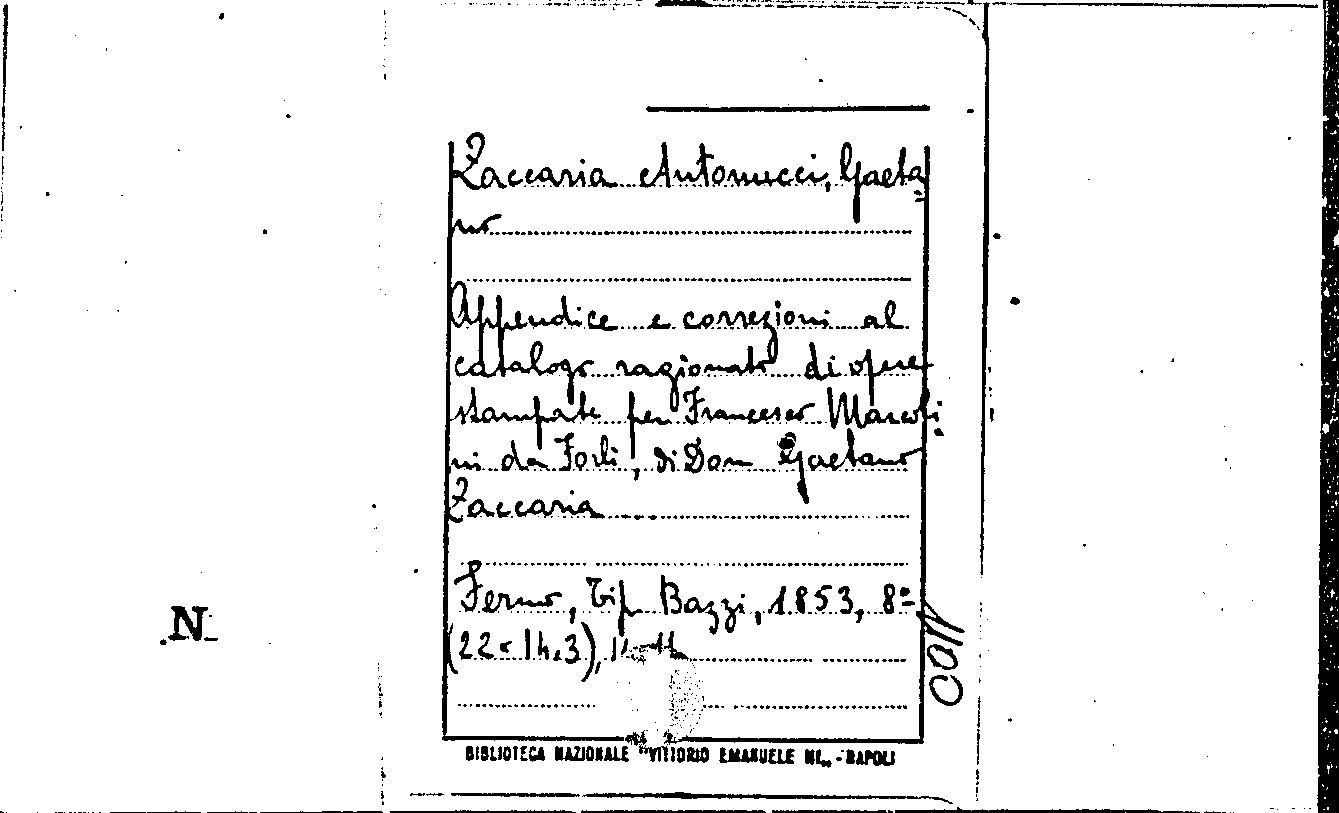 Zaccaria Antonucci, Gaeta=
no
Appendice e correzioni al
catalogo ragionato di opere
stampate per Francesco Marcoli=
ni da Forlì, di Don Gaetano
Zaccaria
Fermo, Tip. Bazzi, 1853, 8º
(22 x 14.3),
coll
N
BIBLIOTECA NAZIONALE "VITTORIO EMANUELE III„ - NAPOLI